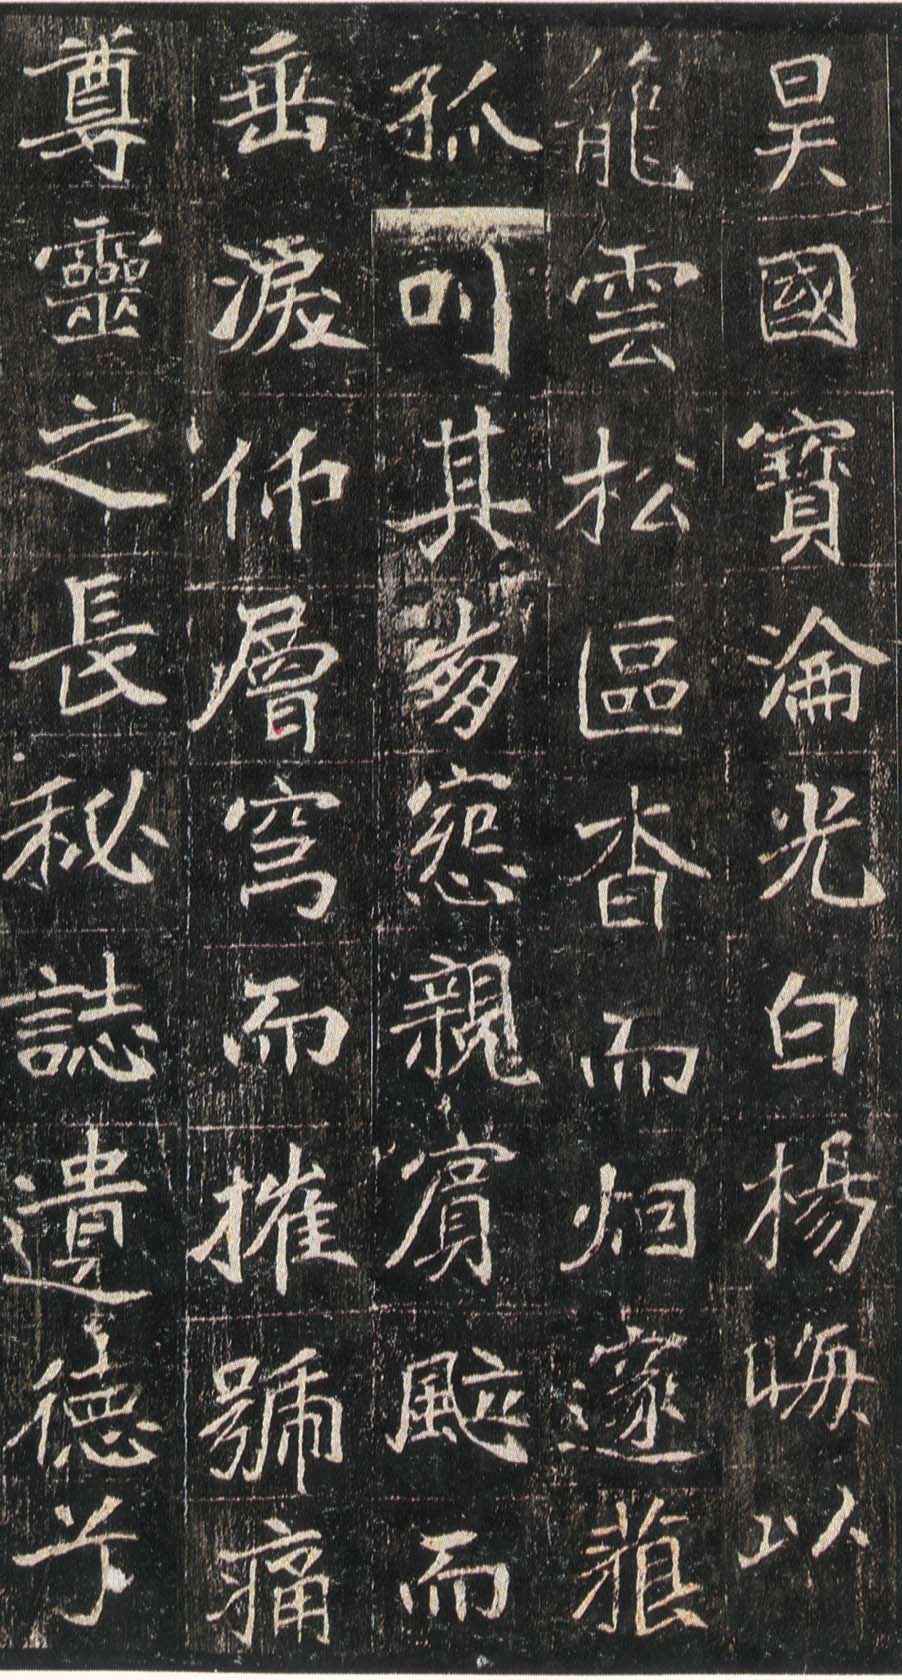 昊國寶淪光白楊晦以
籠雲松區杳而烟邃藐
孤叫其崩惌親賓颯而
垂淚仰層穹而摧號痛
尊靈之長秘誌遺德乎